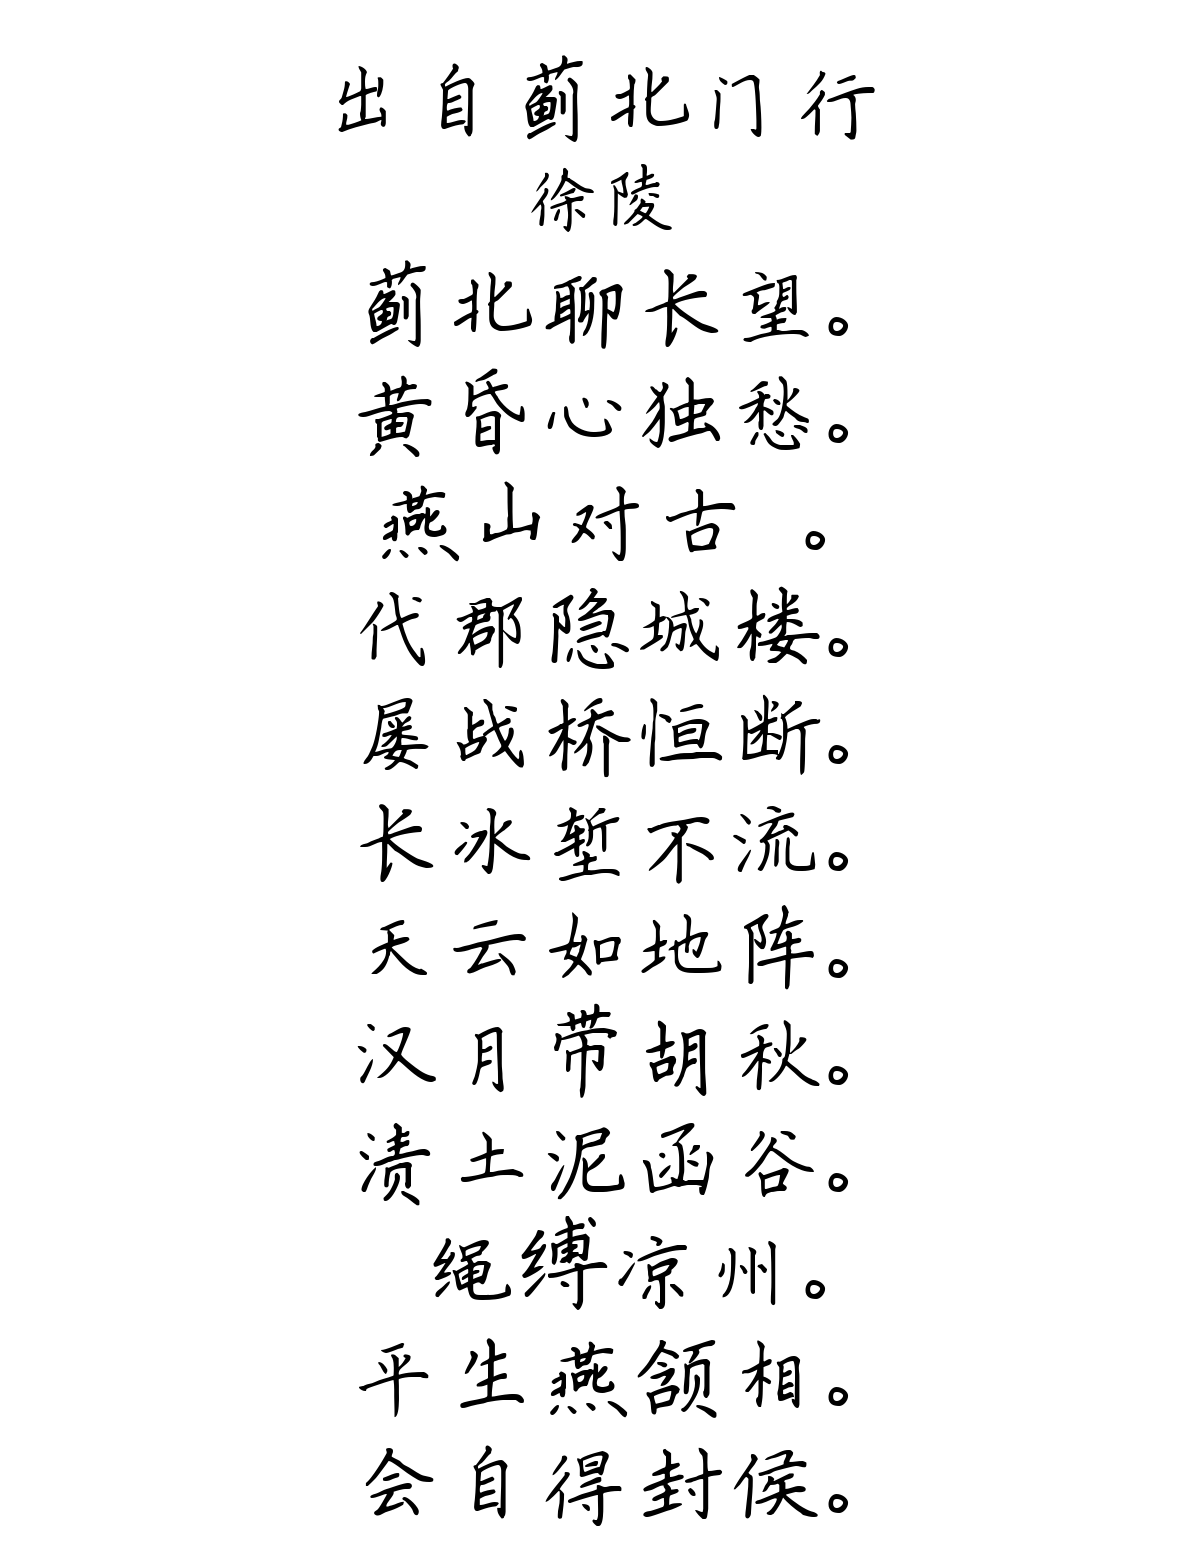 出自蓟北门行
徐陵
蓟北聊长望。
黄昏心独愁。
燕山对古 。
代郡隐城楼。
屡战桥恒断。
长冰堑不流。
天云如地阵。
汉月带胡秋。
渍土泥函谷。
绳缚凉州。
平生燕颔相。
会自得封侯。